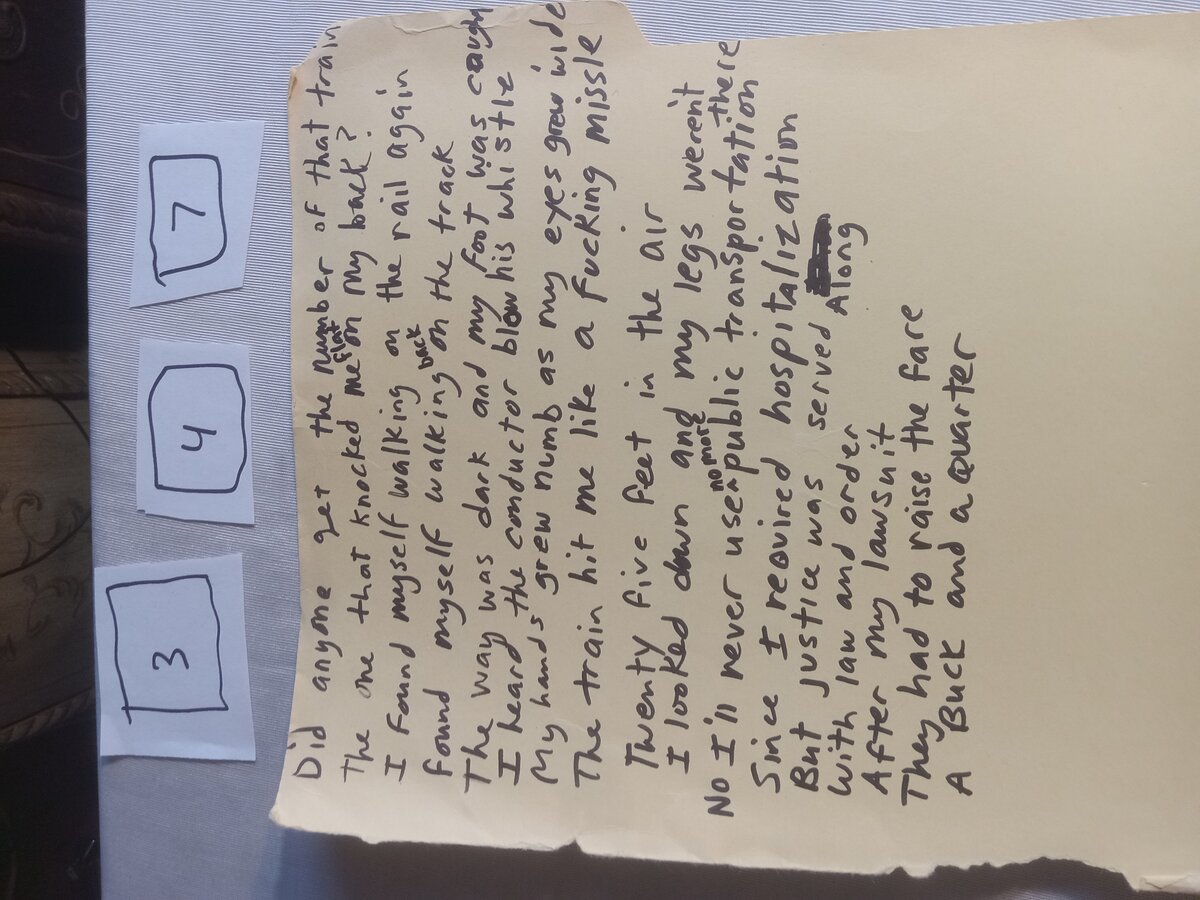 3 4 7
Did anyone get the number of that train
The one that knocked me flat on my back?
I found myself walking on the rail again
Found myself walking back on the track
The way was dark and my foot was caught
I heard the conductor blow his whistle
My hands grew numb as my eyes grew wide
The train hit me like a fucking missle
Twenty five feet in the air
I looked down and my legs weren't there
No I'll never use no more public transportation
Since I required hospitalization
But justice was served Along
with law and order
After my lawsuit
They had to raise the fare
A Buck and a Quarter